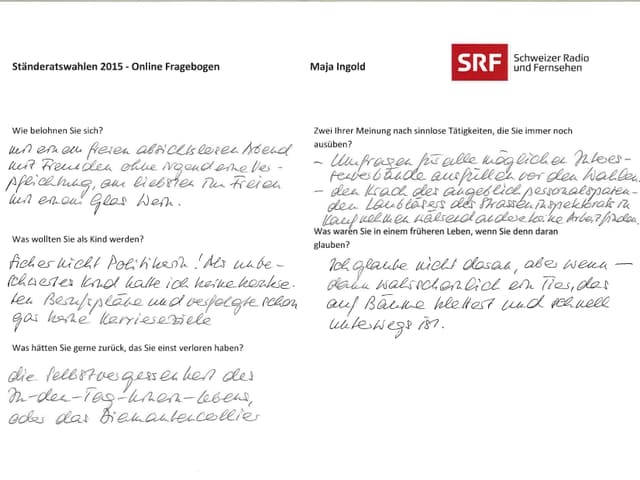 Ständeratswahlen 2015 - Online Fragebogen
Maja Ingold
SRF Schweizer Radio
und Fernsehen
Wie belohnen Sie sich?
mit einem freien absichtslosen Abend
mit Freunden ohne irgendeine Ver-
pflichtung, am liebsten im Freien
mit einem Glas Wein.
Was wollten Sie als Kind werden?
sicher nicht Politikerin! Als unbe-
schwertes Kind hatte ich keine konkre-
ten Berufspläne und verfolgte schon
gar keine Karriereziele
Was hätten Sie gerne zurück, das Sie einst verloren haben?
die Selbstvergessenheit des
In-den-Tag-hinein-Lebens,
oder das Diamantencollier
Zwei Ihrer Meinung nach sinnlose Tätigkeiten, die Sie immer noch
ausüben?
- Umfragen für alle möglichen Interes-
senverbände ausfüllen vor den Wahlen.
- den Krach des angeblich personalsparen-
den Laubbläsers des Strasseninspektorats in
Kauf nehmen während andere keine Arbeit finden.
Was waren Sie in einem früheren Leben, wenn Sie denn daran
glauben?
Ich glaube nicht daran, aber wenn –
dann wahrscheinlich ein Tier, das
auf Bäume klettert und schnell
unterwegs ist.